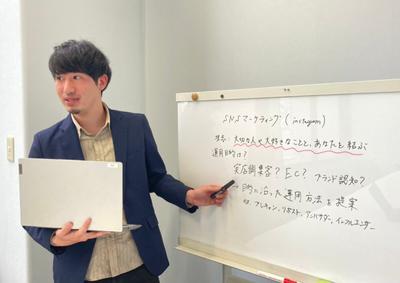 SNSマーケティング (instagram)
理念:大切な人や大好きなことと、あなたと結ぶ
運用目的は?
実店舗集客? EC? ブランド認知?
→目的に沿った運用方法を提案
ex. プレキャン、リポスト、アンバサダー、インフルエンサー